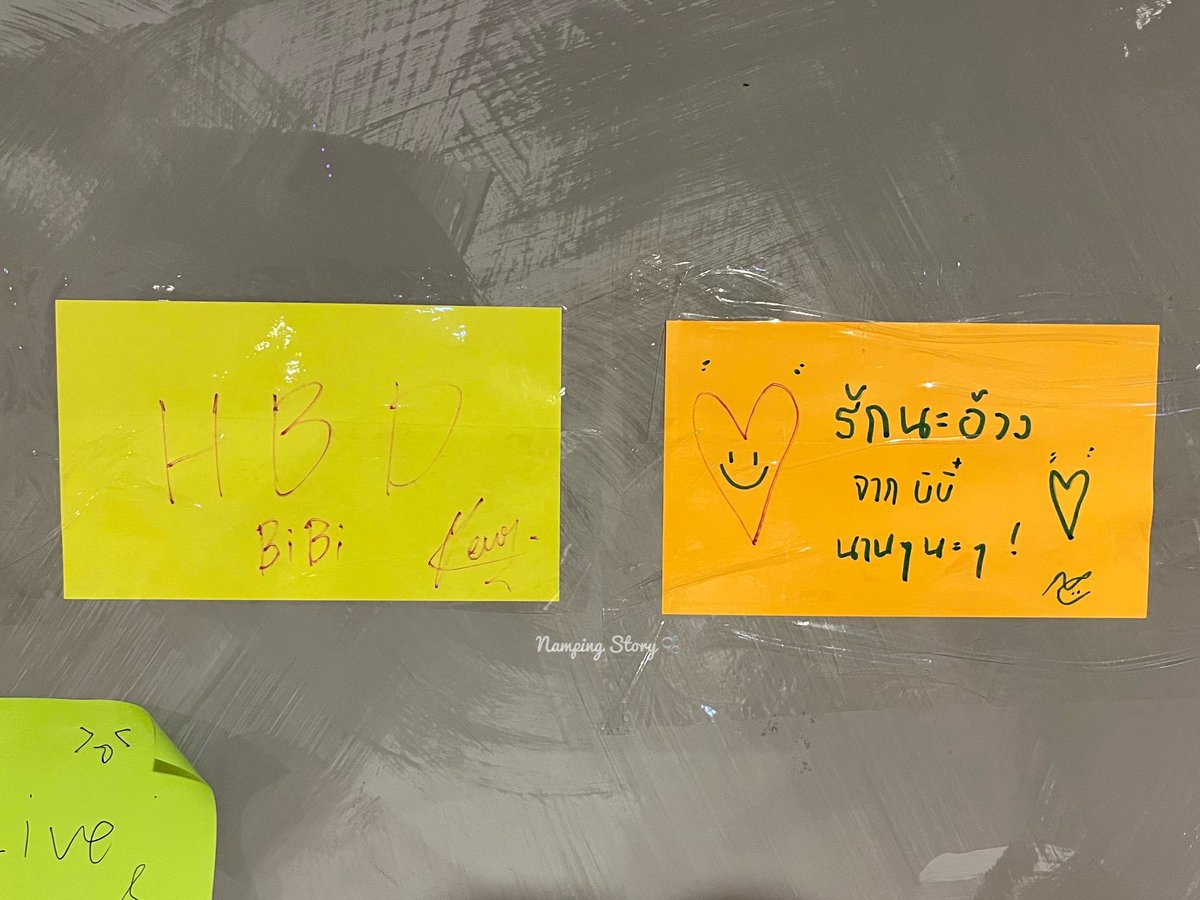 HBD
BiBi
รักนะอ้วง
จาก บิบี๋
นานๆนะๆ !
Namping Story
ive